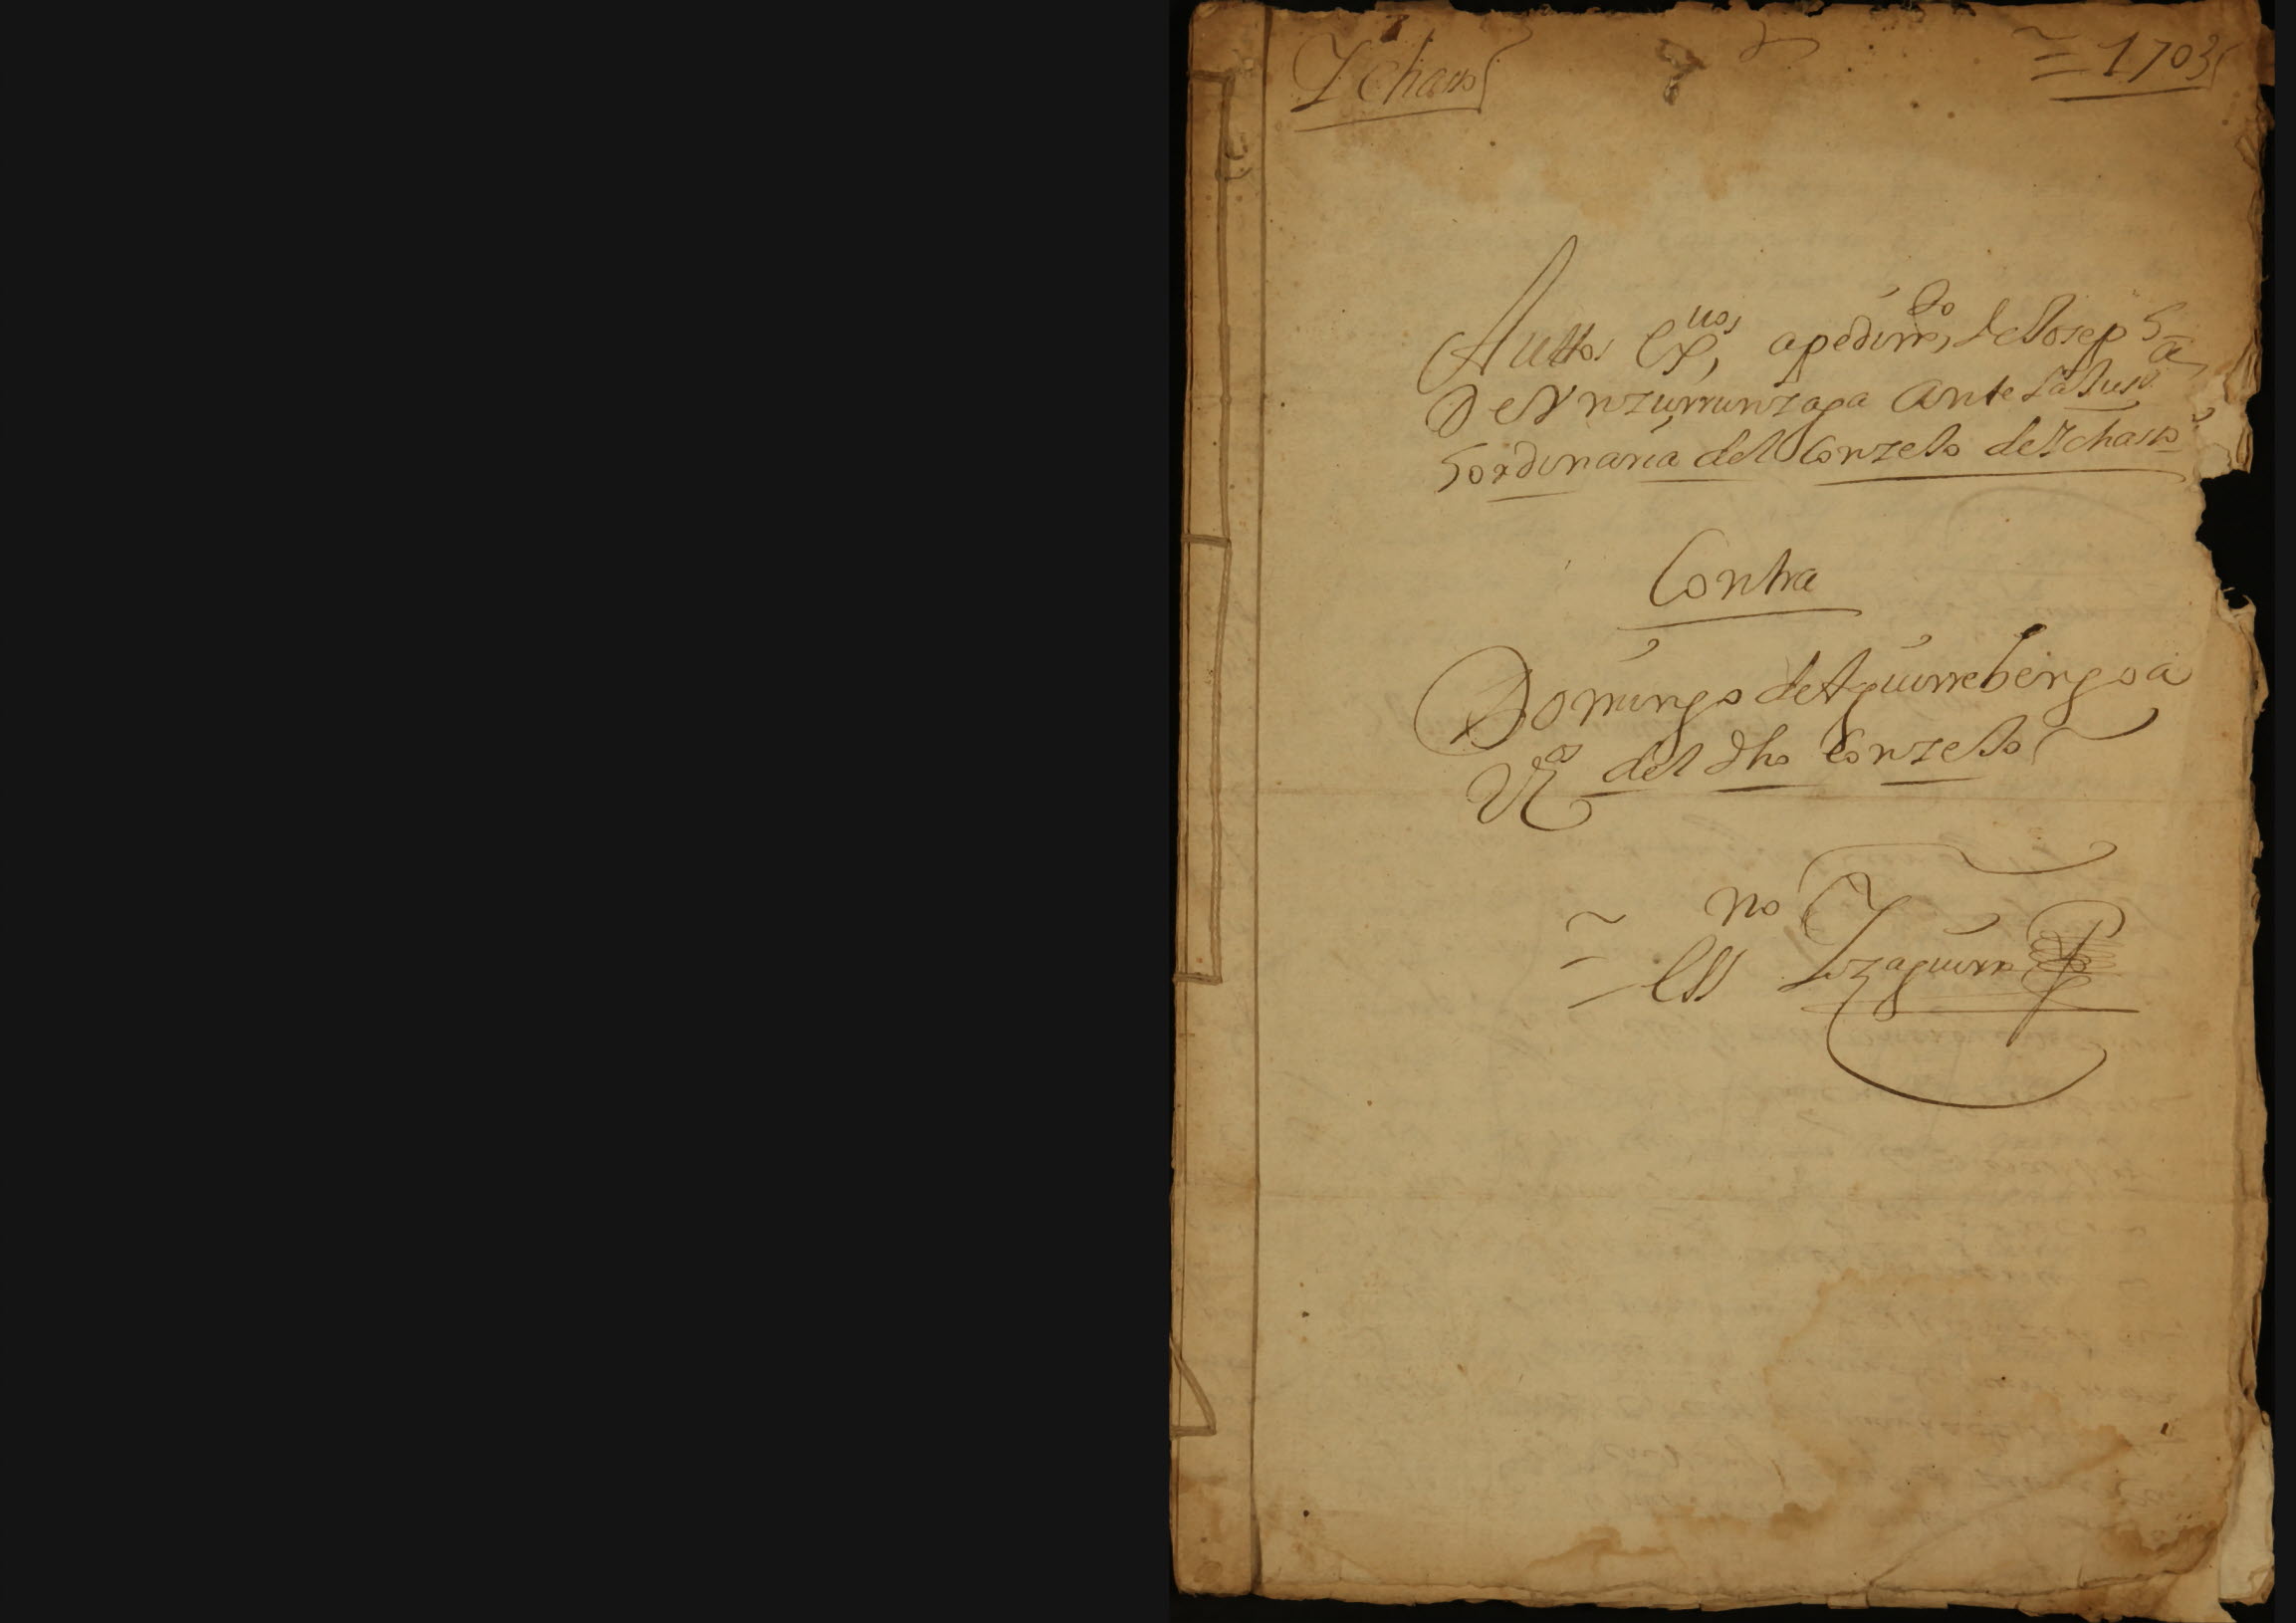 Ychasso
= 1703
Auttos Ex.uos a pedimto de Josep
De Vnzurrunzaga Ante la Jusa
hordinaria del Conzejo de Ychasso
Contra
Domingo de Aguirrebengoa
Vzo del dho Conzejo
= Essno Yzaguirre